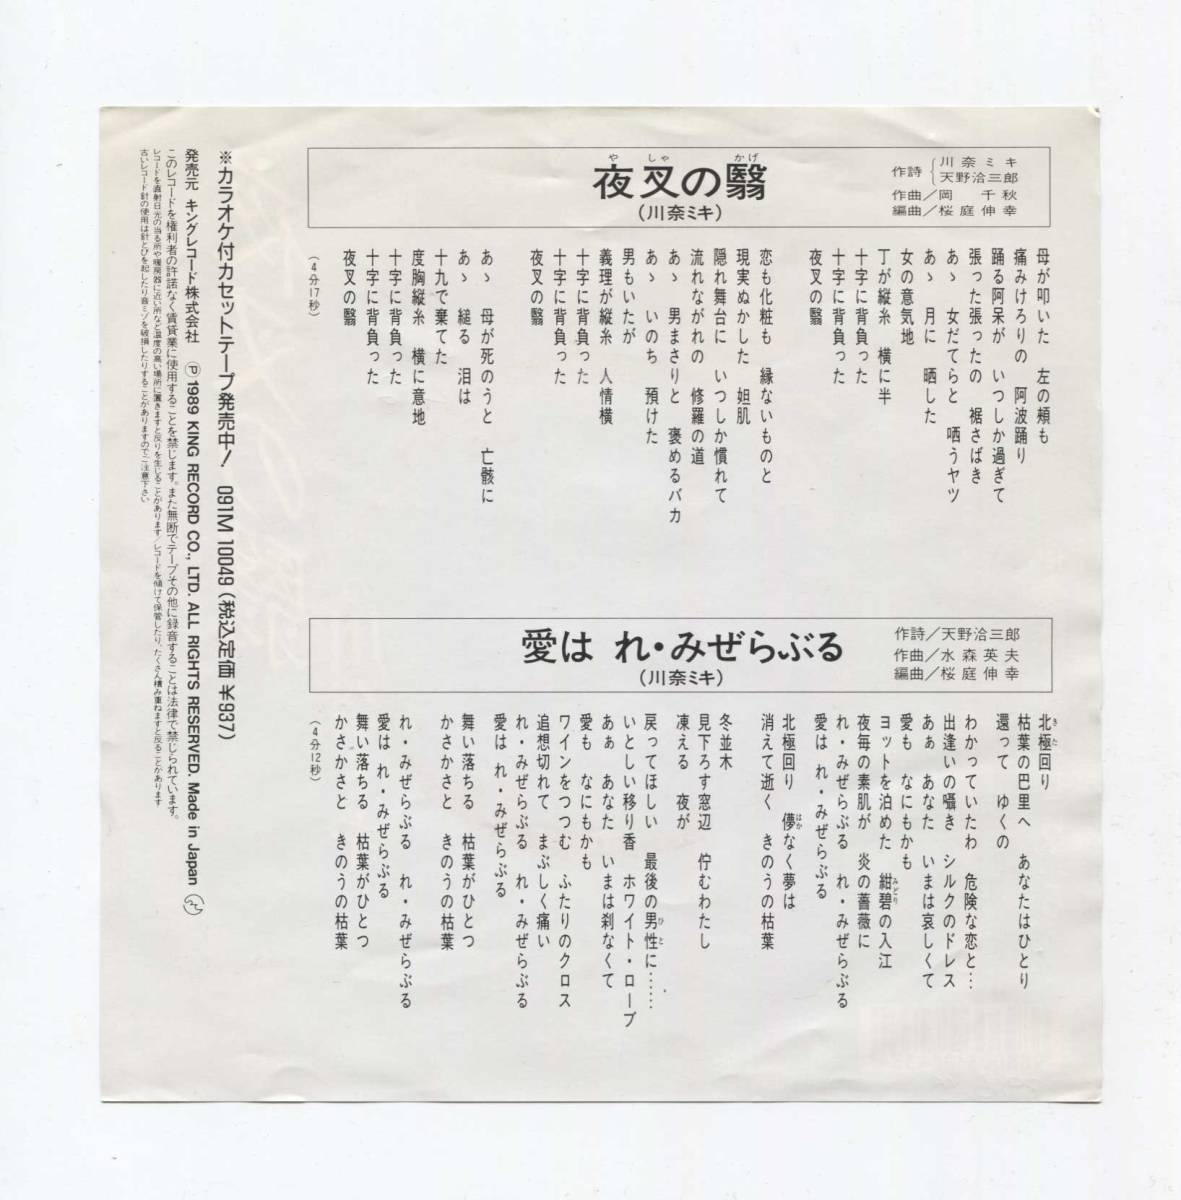 夜叉の翳
や しゃ かげ
(川奈ミキ)
作詩 川奈ミキ
天野洽三郎
作曲/岡 千秋
編曲/桜庭伸幸
母が叩いた 左の頬も
痛みけろりの 阿波踊り
踊る阿呆が いつしか過ぎて
張った張ったの 裾さばき
あゝ 女だてらと 哂うヤツ
あゝ 月に 晒した
女の意気地
丁が縦糸 横に半
十字に背負った
十字に背負った
夜叉の翳
恋も化粧も 縁ないものと
現実ぬかした 妲肌
隠れ舞台に いつしか慣れて
流れながれの 修羅の道
あゝ 男まさりと 褒めるバカ
あゝ いのち 預けた
男もいたが
義理が縦糸 人情横
十字に背負った
十字に背負った
夜叉の翳
あゝ 母が死のうと 亡骸に
あゝ 縋る 泪は
十九で棄てた
度胸縦糸 横に意地
十字に背負った
十字に背負った
夜叉の翳
(4分17秒)
愛は れ・みぜらぶる
(川奈ミキ)
作詩/天野洽三郎
作曲/水森英夫
編曲/桜庭伸幸
北極回り
きた
枯葉の巴里へ あなたはひとり
還って ゆくの
わかっていたわ 危険な恋と…
出逢いの囁き シルクのドレス
あぁ あなた いまは哀しくて
愛も なにもかも
ヨットを泊めた 紺碧の入江
みどり
夜毎の素肌が 炎の薔薇に
れ・みぜらぶる れ・みぜらぶる
愛は れ・みぜらぶる
北極回り 儚なく夢は
はか
消えて逝く きのうの枯葉
冬並木
見下ろす窓辺 佇むわたし
凍える 夜が
戻ってほしい 最後の男性に……
ひと
いとしい移り香 ホワイト・ローブ
あぁ あなた いまは刹なくて
愛も なにもかも
ワインをつつむ ふたりのクロス
追想切れて まぶしく痛い
れ・みぜらぶる れ・みぜらぶる
愛は れ・みぜらぶる
舞い落ちる 枯葉がひとつ
かさかさと きのうの枯葉
れ・みぜらぶる れ・みぜらぶる
愛は れ・みぜらぶる
舞い落ちる 枯葉がひとつ
かさかさと きのうの枯葉
(4分12秒)
※カラオケ付カセットテープ発売中! 091M 10049 (税込定価 ¥937)
発売元 キングレコード株式会社 ℗1989 KING RECORD CO., LTD. ALL RIGHTS RESERVED. Made in Japan
このレコードを権利者の許諾なく賃貸業に使用することを禁じます。また無断でテープその他に録音することは法律で禁じられています。
レコードを直射日光の当る所や暖房器に近い所など温度の高い場所に置きますと反りを生じることがあります/レコードを傾けて保管したり、たくさん積み重ねますと反ることがあります
古いレコード針の使用は針とびを起したり音ミゾを破損したりすることがありますのでご注意下さい